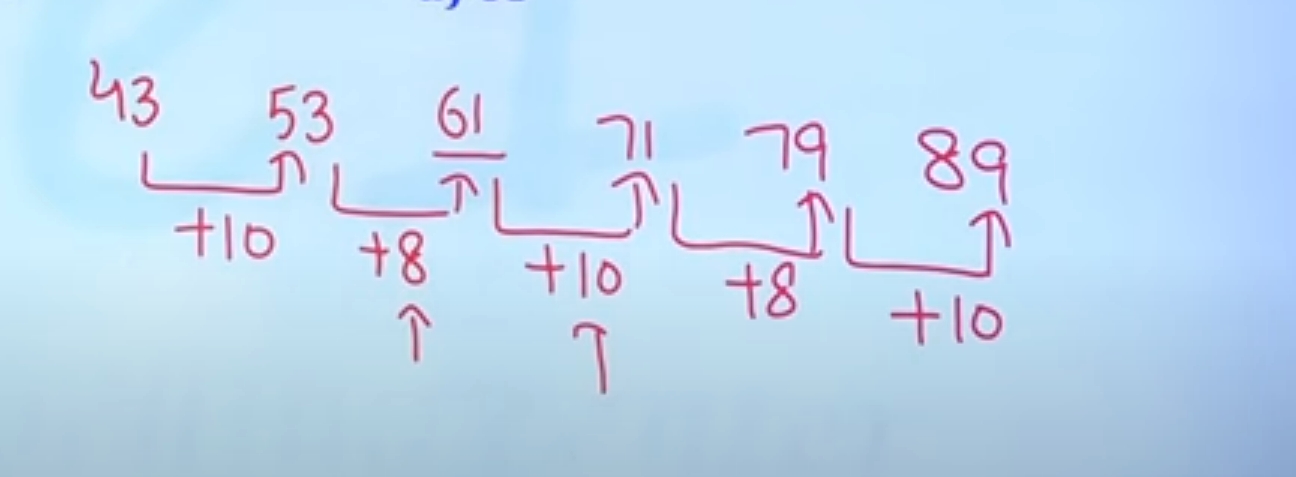 43 53 61 71 79 89
+10 +8 +10 +8 +10